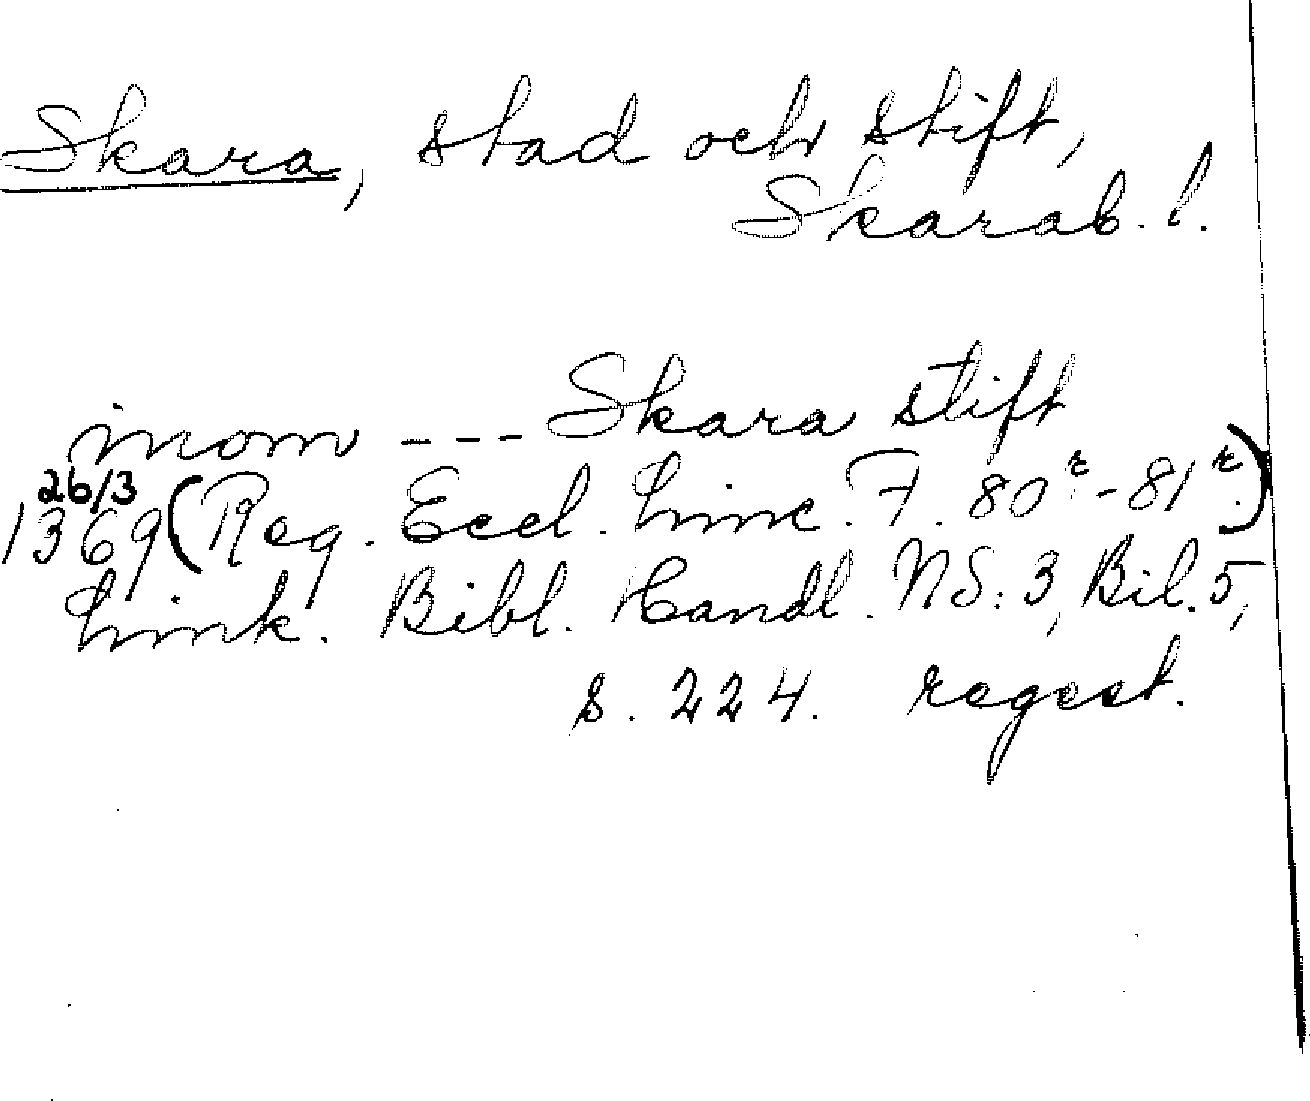 Skara, stad och stift,
Skarab. l.
inom --- Skara stift
26/3
1369 (Reg. Eccl. Linc. F. 80r-81r.)
Link. Bibl. Handl. NS: 3, Bil. 5,
s. 224. regest.